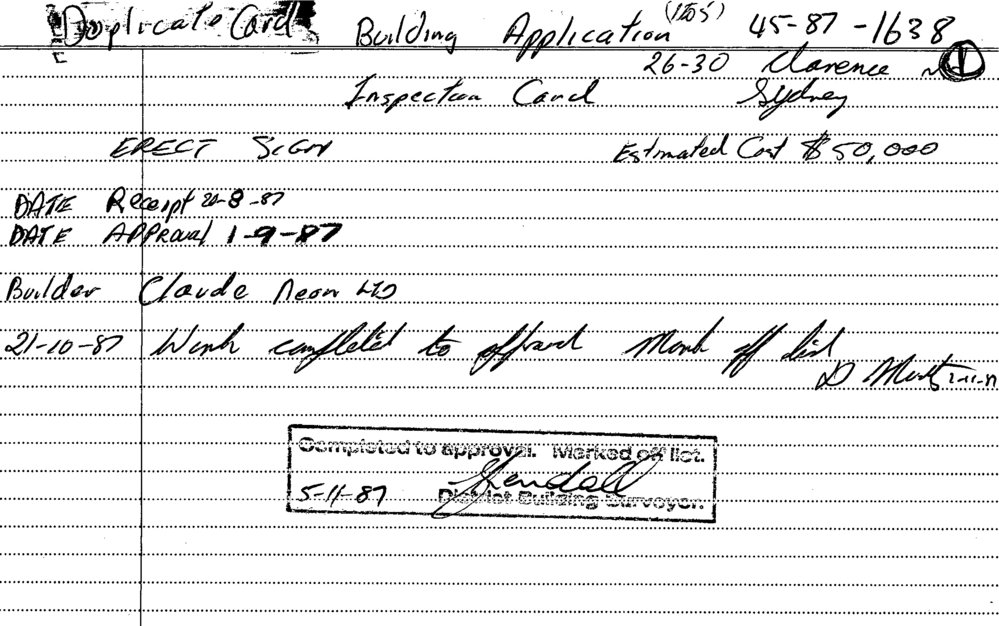 Duplicate Card Building Application (1205) 45-87-1638
26-30 Clarence
Inspection Card Sydney
ERECT SIGN Estimated Cost $50,000
DATE Receipt 20-8-87
DATE APPROVAL 1-9-87
Builder Claude Neon LTD
21-10-87 Work completed to approval Mark off list
D
Completed to approval. Marked off list.
5-11-87 District Building Surveyor.